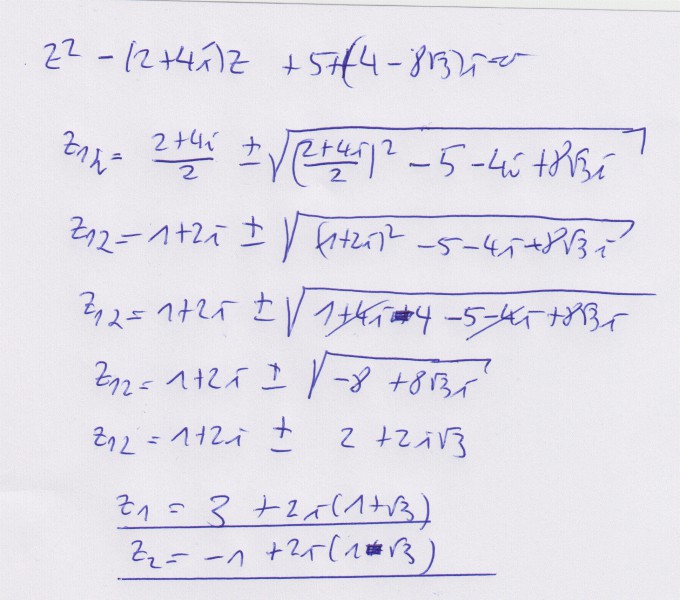 z² - (2+4i)z + 5+(4 - 8√3)i=0
z₁,₂= (2+4i)/2 ± √(((2+4i)/2)² - 5 - 4i + 8√3i)
z₁₂ = 1+2i ± √((1+2i)² - 5 - 4i + 8√3 i)
z₁₂ = 1+2i ± √(1+4i-4 -5-4i +8√3i)
z₁₂ = 1+2i ± √(-8 + 8√3i)
z₁₂ = 1+2i ± 2 + 2i√3
z₁ = 3 + 2i(1+√3)
z₂ = -1 + 2i(1-√3)